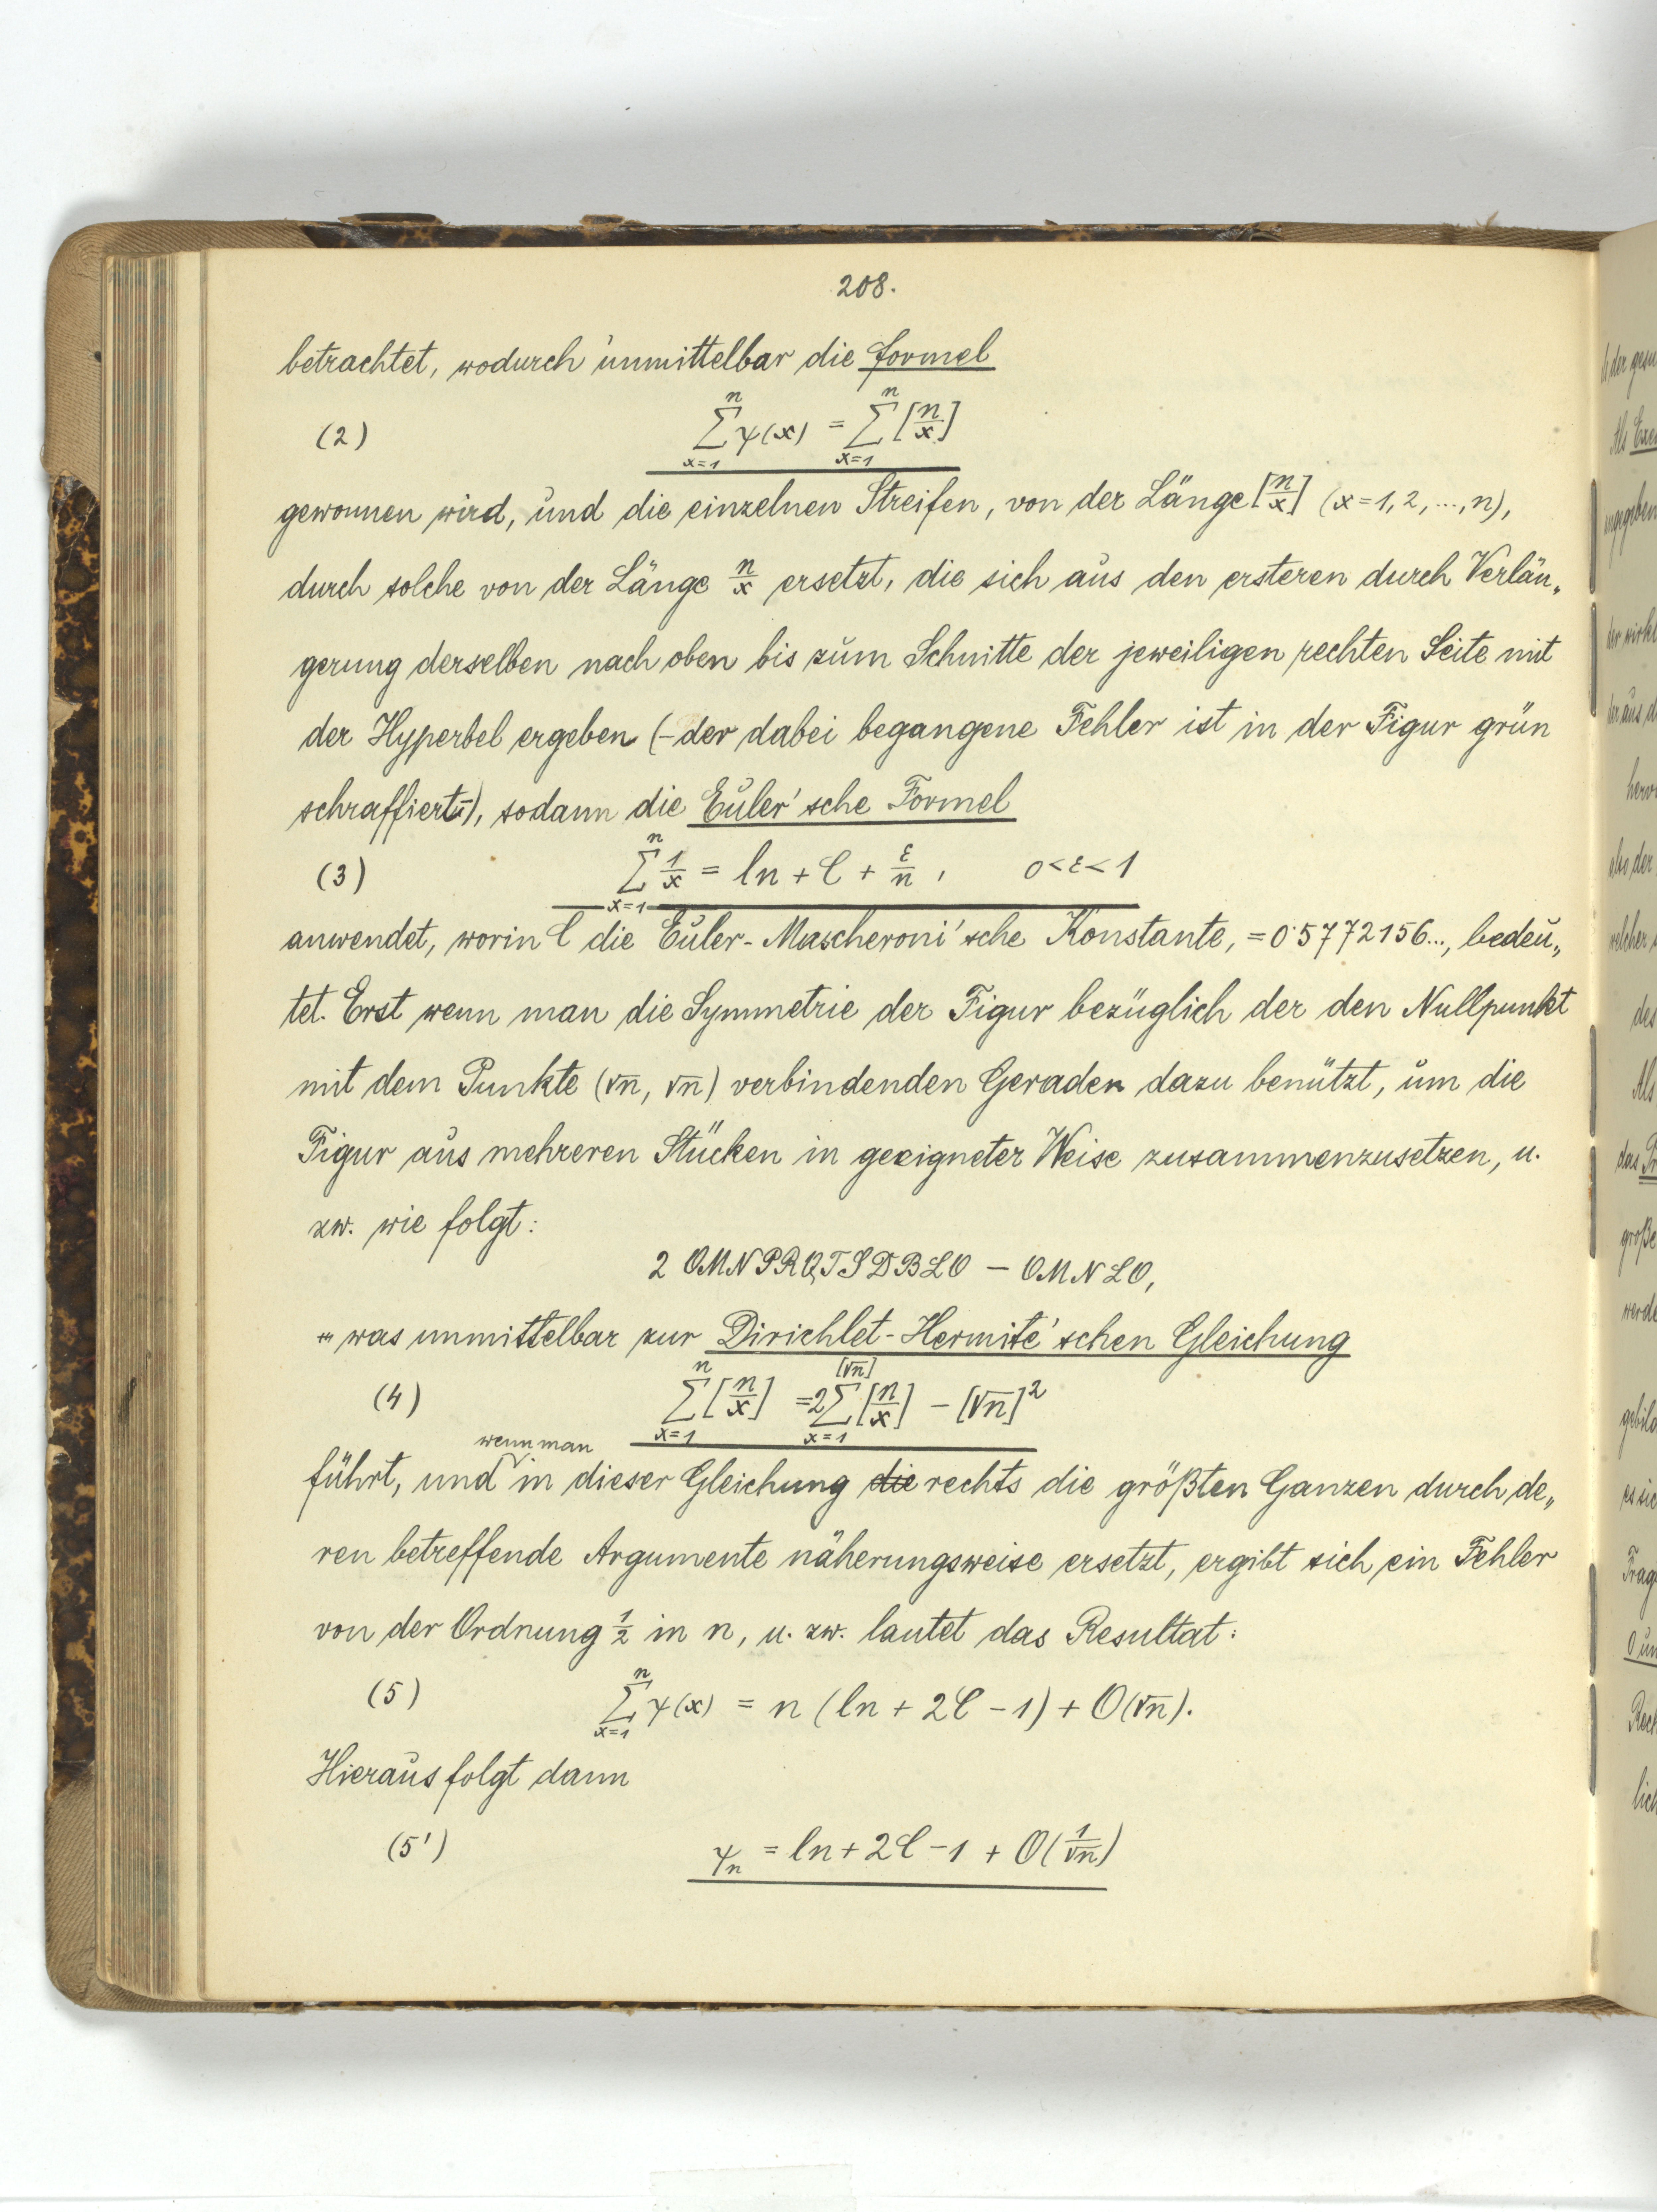 208.
betrachtet, wodurch unmittelbar die Formel
(2) \sum_{x=1}^{n} ψ(x) = \sum_{x=1}^{n} [\frac{n}{x}]
gewonnen wird, und die einzelnen Streifen, von der Länge [\frac{n}{x}] (x=1, 2, ..., n),
durch solche von der Länge \frac{n}{x} ersetzt, die sich aus den ersteren durch Verlän„
gerung derselben nach oben bis zum Schnitte der jeweiligen rechten Seite mit
der Hyperbel ergeben (– der dabei begangene Fehler ist in der Figur grün
schraffiert –), sodann die Euler'sche Formel
(3) \sum_{x=1}^{n} \frac{1}{x} = ln + C + \frac{ε}{n}, 0<ε<1
anwendet, worin C die Euler-Mascheroni'sche Konstante, = 0·5772156..., bedeu„
tet. Erst wenn man die Symmetrie der Figur bezüglich der den Nullpunkt
mit dem Punkte (√n, √n) verbindenden Geraden dazu benützt, um die
Figur aus mehreren Stücken in geeigneter Weise zusammenzusetzen, u.
zw. wie folgt:
2 OMNPRQTSDBLO – OMNLO,
was unmittelbar zur Dirichlet-Hermite'schen Gleichung
(4) \sum_{x=1}^{n} [\frac{n}{x}] = 2 \sum_{x=1}^{[√n]} [\frac{n}{x}] – [√n]²
führt, und wenn man in dieser Gleichung die rechts die größten Ganzen durch de„
ren betreffende Argumente näherungsweise ersetzt, ergibt sich ein Fehler
von der Ordnung ½ in n, u. zw. lautet das Resultat:
(5) \sum_{x=1}^{n} ψ(x) = n (ln + 2C – 1) + O(√n).
Hieraus folgt dann
(5') ψ_n = ln + 2C – 1 + O(\frac{1}{√n})